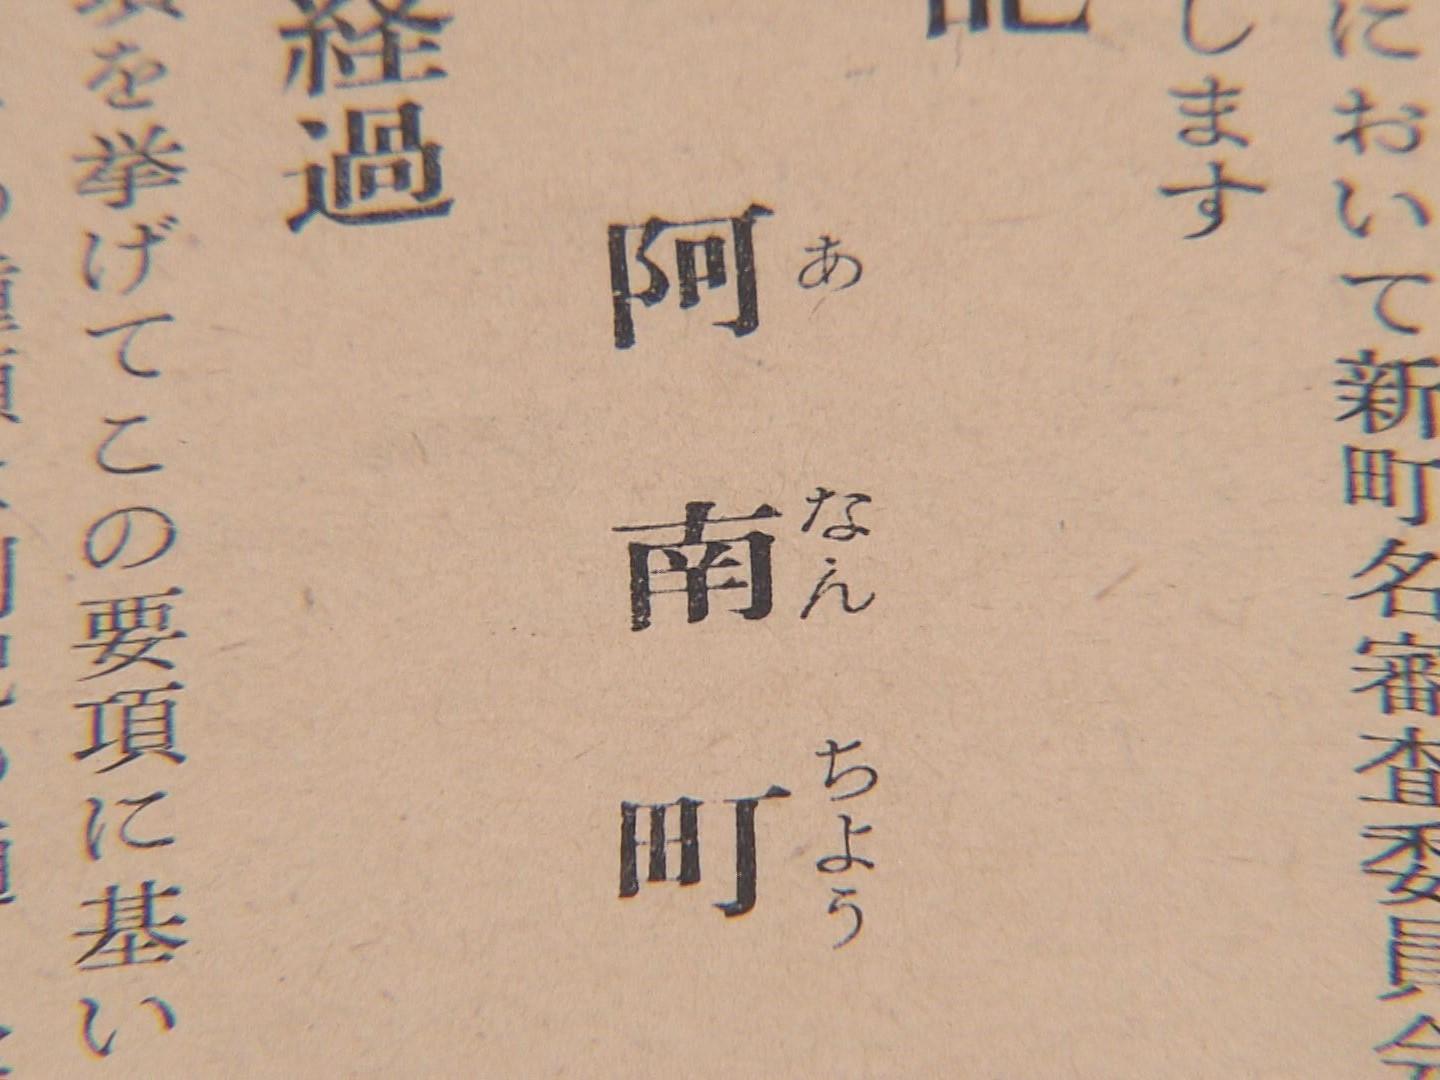 において新町名審査委員会
します
記
あ なん ちよう
阿南町
経過
を挙げてこの要項に基い